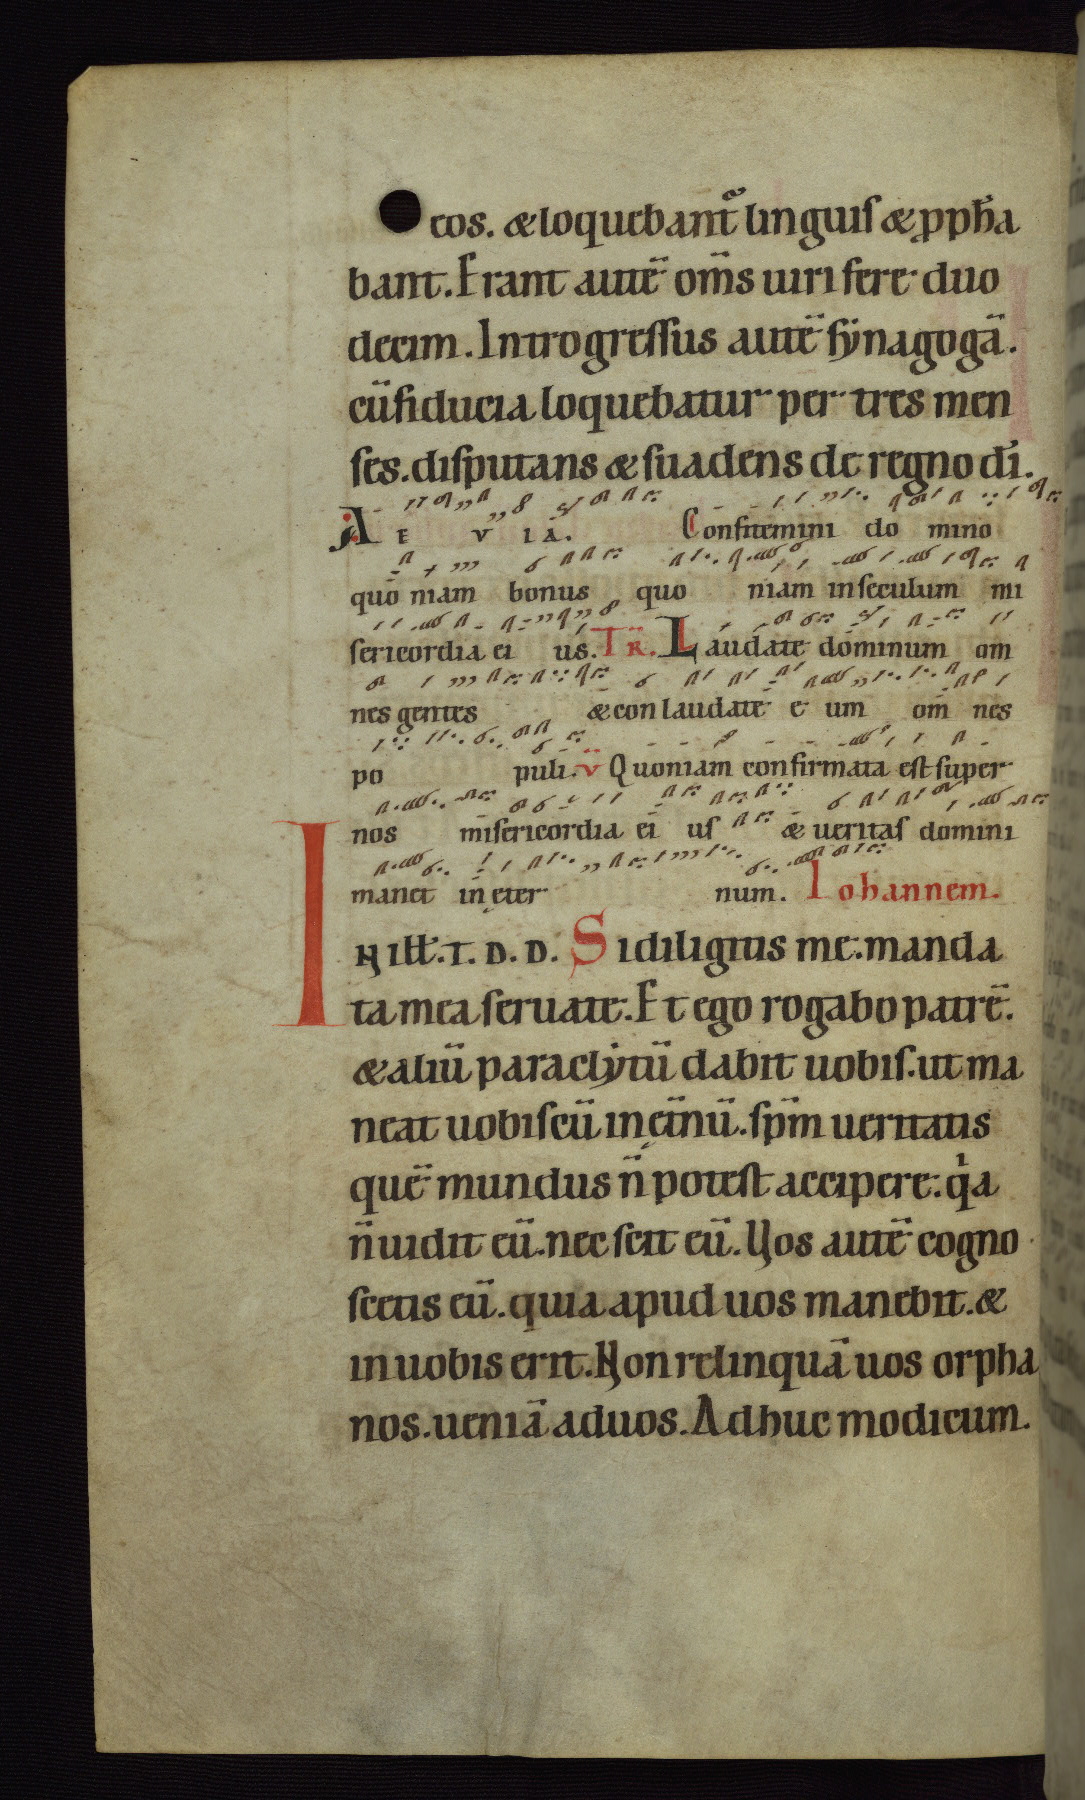 eos. & loquebant̃ linguis & ꝓpħa
bant. Erant autē om̄s uiri fere duo
decim. Introgressus autē synagogā.
cū fiducia loquebatur per tres men
ses. disputans & suadens de regno dī.
AE V IA. Confitemini do mino
quō niam bonus quo niam in seculum mi
sericordia ei us. TR. Laudate dominum om
nes gentes & con laudate e um om nes
po puli. V Quoniam confirmata est super
nos misericordia ei us & ueritas domini
manet in ęter num. Iohannem.
IN ILŁ. T. D. D. Si diligitis me. manda
ta mea seruate. Et ego rogabo patrē.
& aliū paraclytū dabit uobis. ut ma
neat uobiscū in ęt̄nū. sp̄m ueritatis
quē mundus n̄ potest accipere. qⁱa
n̄ uidit eū. nec scit eū. Vos autē cogno
scetis eū. quia apud uos manebit. &
in uobis erit. Non relinquā uos orpha
nos. ueniā ad uos. Adhuc modicum.